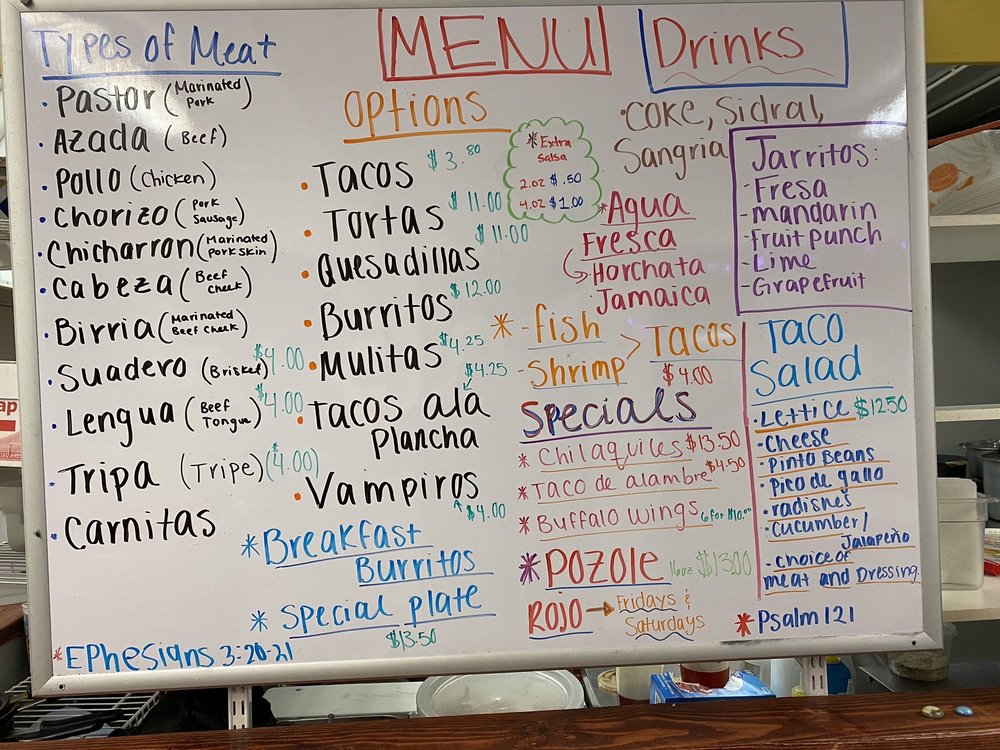 Types of Meat
• Pastor (Marinated Pork)
• Azada (Beef)
• Pollo (Chicken)
• Chorizo (Pork Sausage)
• Chicharron (Marinated Pork skin)
• Cabeza (Beef Cheek)
• Birria (Marinated Beef Cheek)
• Suadero (Brisket) $4.00
• Lengua (Beef Tongue) $4.00
• Tripa (Tripe) (4.00)
• Carnitas
MENU
Options
• Tacos $3.80
• Tortas $11.00
• Quesadillas $11.00
• Burritos $12.00
• Mulitas $4.25
• Tacos ala Plancha $4.25
• Vampiros $4.00
* Breakfast
Burritos
* Special plate
$13.50
* Ephesians 3:20-21
* Extra
Salsa
2.oz $.50
4.oz $1.00
Drinks
• Coke, Sidral,
Sangria
* Agua
Fresca
Horchata
Jamaica
Jarritos:
- Fresa
- mandarin
- Fruit punch
- Lime
- Grapefruit
* - fish
- Shrimp > Tacos
$4.00
Specials
* Chilaquiles $13.50
* Taco de alambre $4.50
* Buffalo Wings 6 for $10.00
* Pozole 16oz $13.00
Rojo → Fridays &
Saturdays
Taco
Salad
- Lettice $12.50
- Cheese
- Pinto Beans
- Pico de gallo
- radishes
- cucumber/
Jalapeño
- choice of
meat and Dressing
* Psalm 121
ap